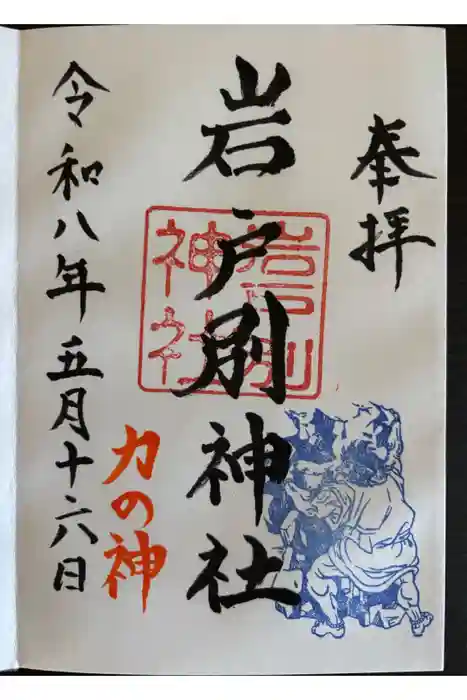 奉拝
岩戸別神社
岩戸別
神社
令和八年五月十六日
力の神